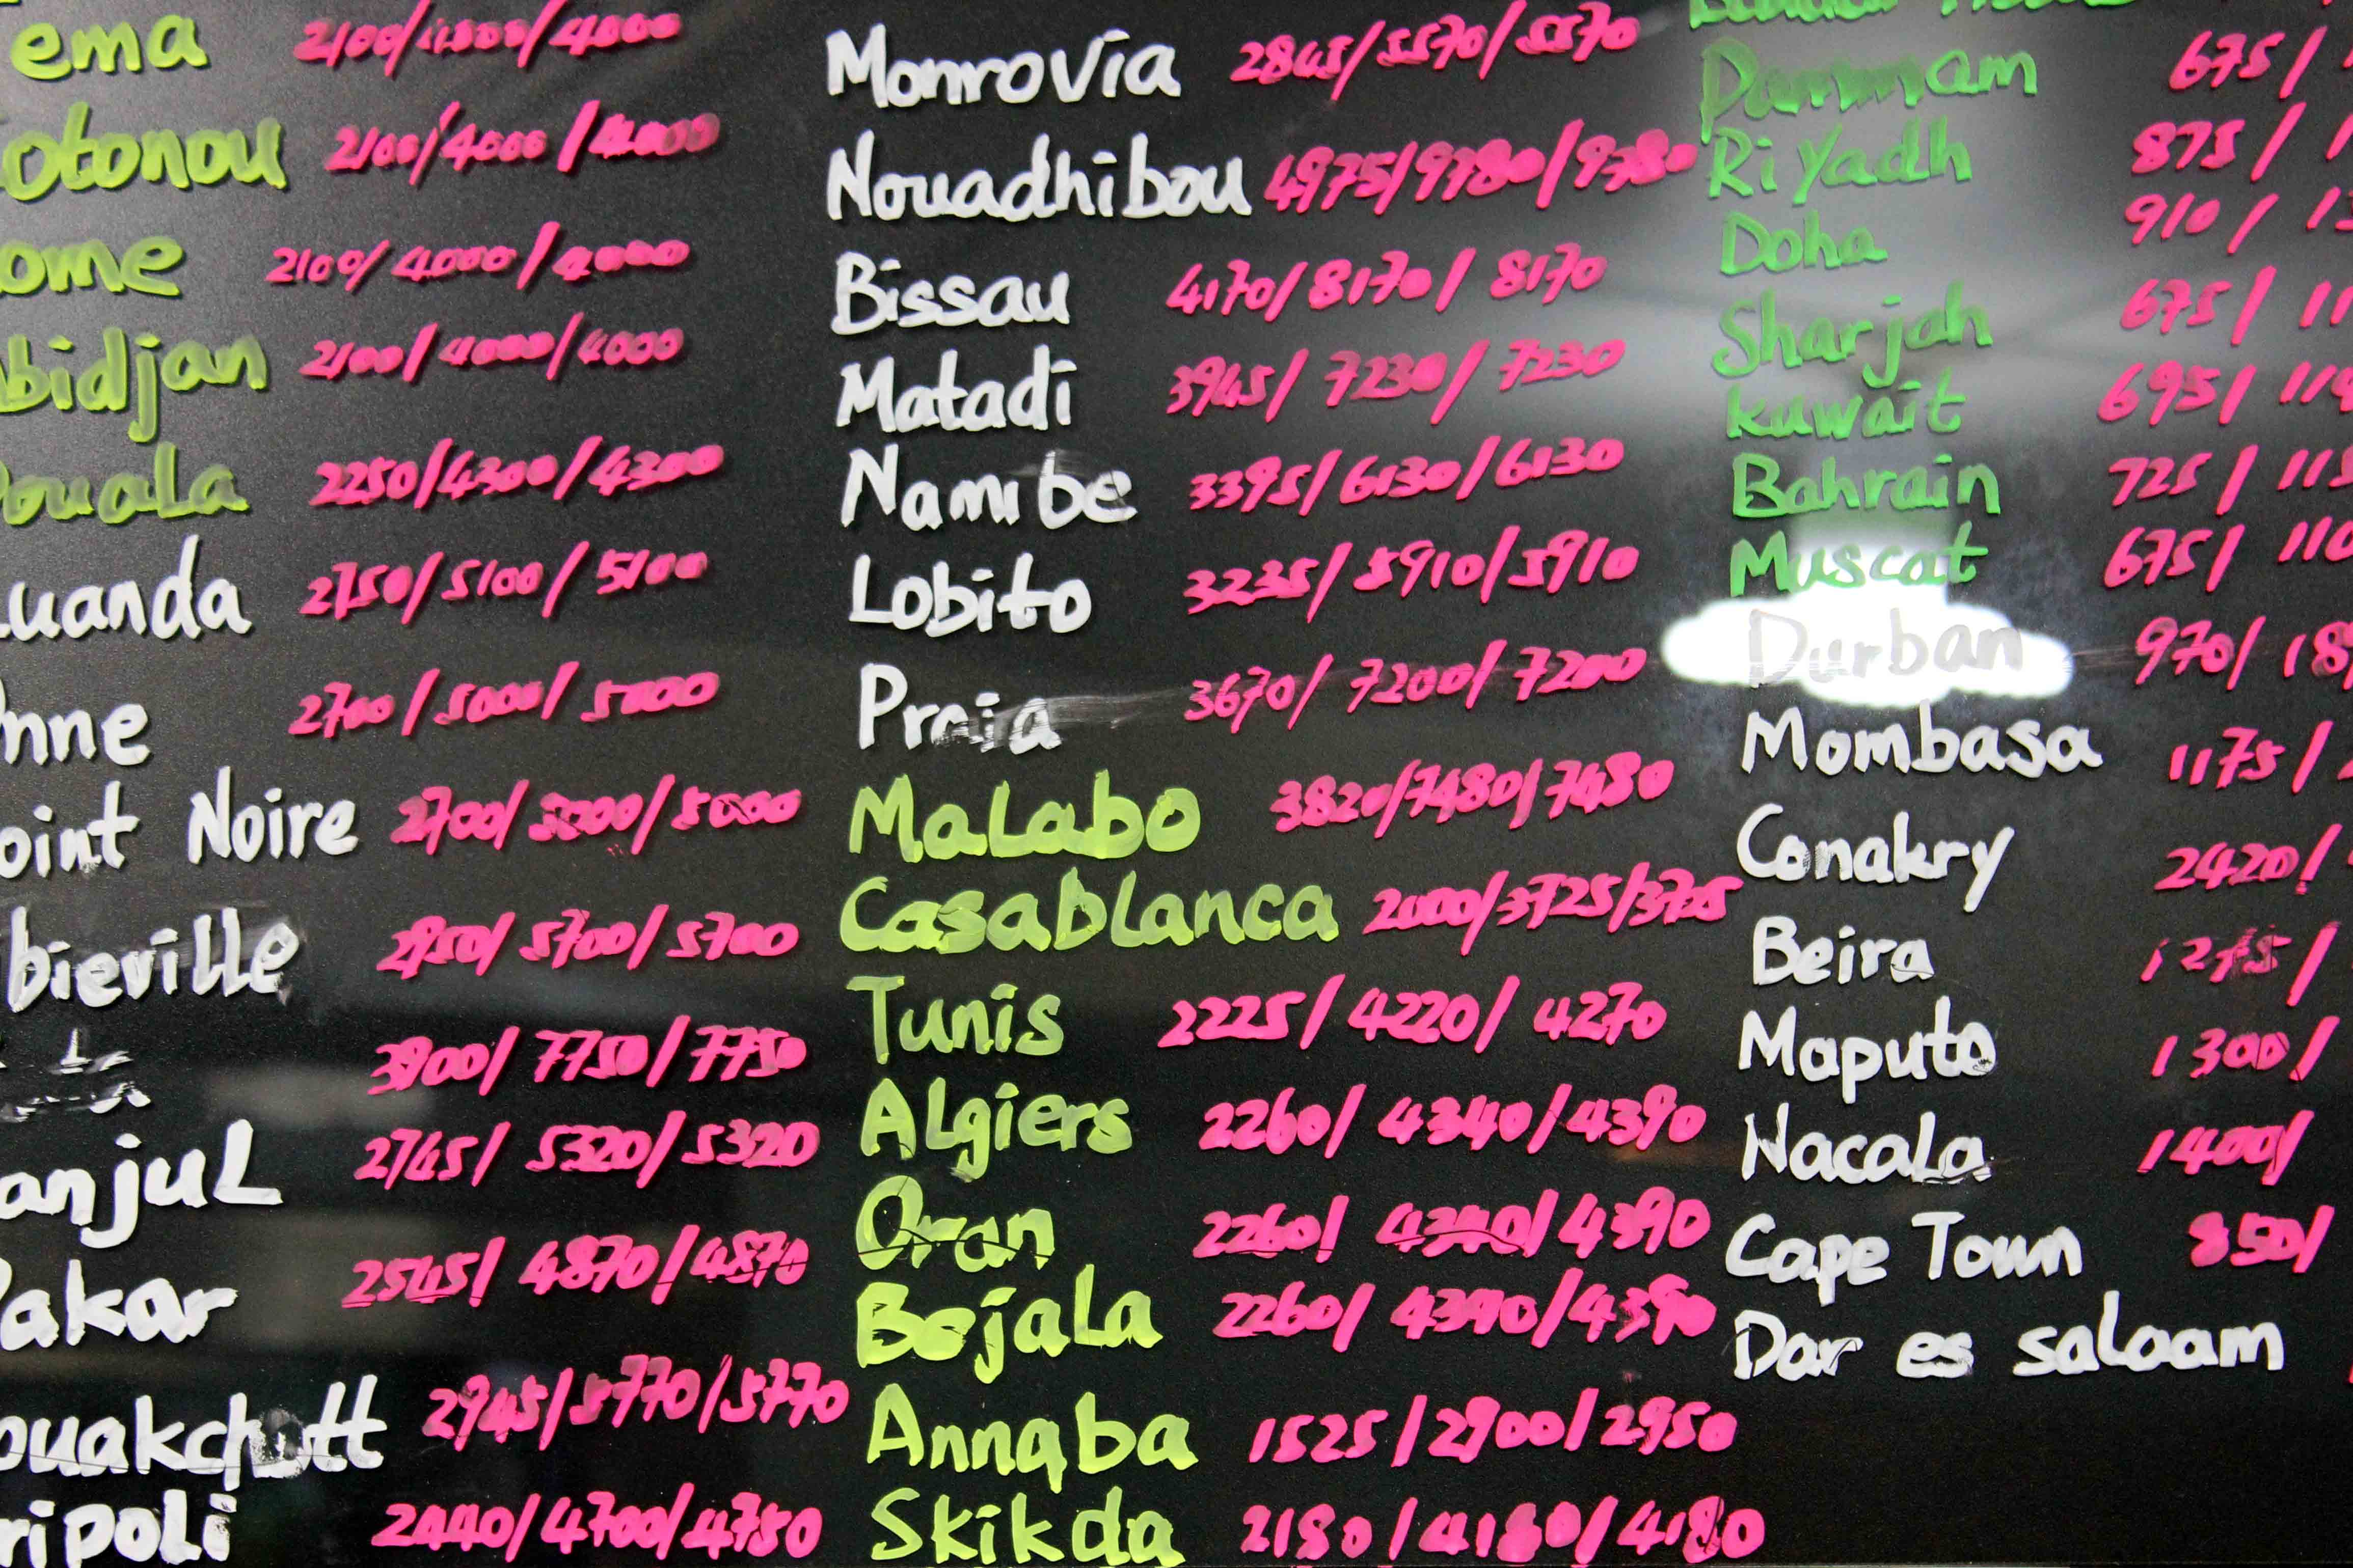 ema 2100/4000/4000
otonou 2100/4000/4000
ome 2100/4000/4000
bidjan 2100/4000/4000
ouala 2250/4300/4300
uanda 2750/5100/5100
nne 2700/5000/5000
oint Noire 2700/5000/5000
bieville 2950/5700/5700
3900/7750/7750
anjul 2745/5320/5320
akar 2545/4870/4870
ouakchott 2945/5770/5770
ripoli 2440/4700/4750
Monrovia 2845/5570/5570
Nouadhibou 4975/9780/9780
Bissau 4170/8170/8170
Matadi 3945/7230/7230
Namibe 3395/6130/6130
Lobito 3235/5910/5910
Praia 3670/7200/7200
Malabo 3820/7480/7480
Casablanca 2000/3725/3725
Tunis 2225/4220/4270
Algiers 2260/4340/4390
Oran 2260/4340/4390
Bejala 2260/4340/4390
Annaba 1525/2900/2950
Skikda 2180/4180/4180
Dammam 675/
Riyadh 875/1
Doha 910/13
Sharjah 675/11
Kuwait 695/114
Bahrain 725/115
Muscat 675/110
Durban 970/18
Mombasa 1175/
Conakry 2420/
Beira 1275/
Maputo 1300/
Nacala 1400/
Cape Town 850/
Dar es salaam